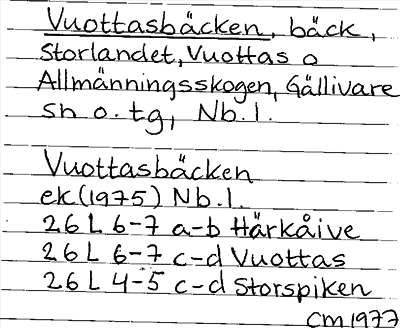 Vuottasbäcken, bäck,
Storlandet, Vuottas o
Allmänningsskogen, Gällivare
sn o. tg, Nb. l.
Vuottasbäcken
ek (1975) Nb. l.
26 L 6-7 a-b Härkåive
26 L 6-7 c-d Vuottas
26 L 4-5 c-d Storspiken
CM 1977